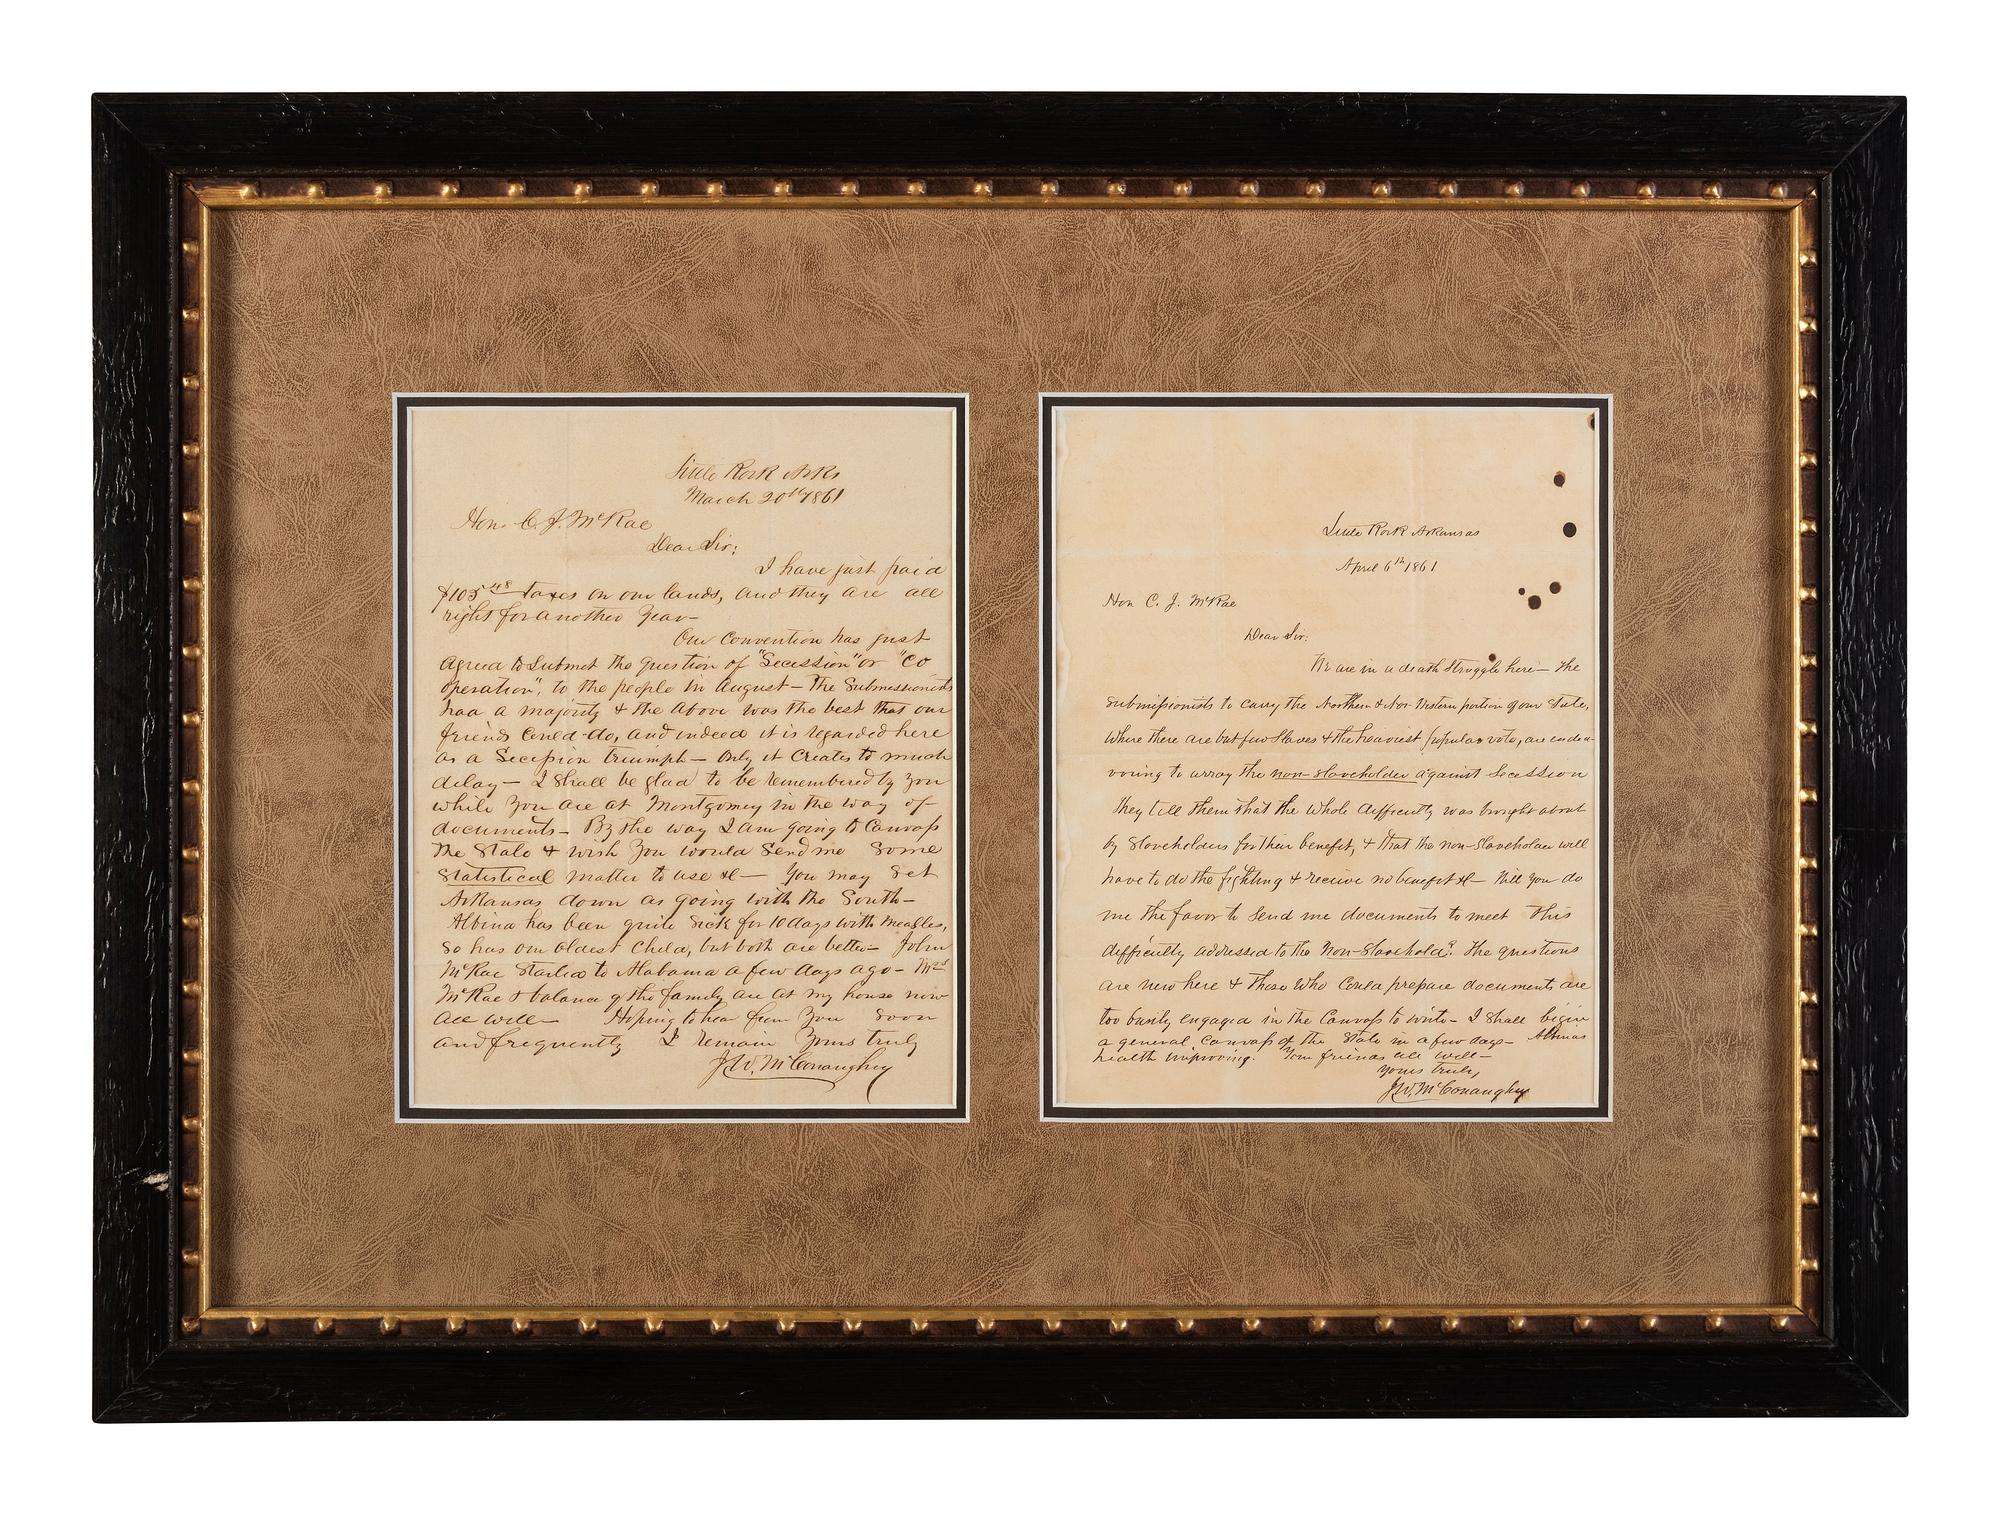 Little Rock Arks
March 20th 1861
Hon. C. J. McRae
Dear Sir:
I have just paid
$105 48 taxes on our lands, and they are all
right for another year—
Our Convention has just
agreed to submit the question of "Secession" or "Co
operation", to the people in August— The Submissionists
had a majority & the above was the best that our
friends could do, and indeed it is regarded here
as a Secession triumph— Only it creates to much
delay— I shall be glad to be remembered by you
while you are at Montgomery in the way of
documents— By the way I am going to Canvass
the State & wish you would send me some
Statistical matter to use &c— You may set
Arkansas down as going with the South—
Albina has been quite sick for 10 days with measles,
so has our oldest child, but both are better— John
McRae started to Alabama a few days ago— Mrs
McRae & balance of the family are at my house now
all well— Hoping to hear from you soon
and frequently I remain Yours truly
J.W. McConaughey
Little Rock Arkansas
April 6th 1861
Hon C. J. McRae
Dear Sir:
We are in a death struggle here— The
submissionists to carry the Northern & Nor-Western portion of our State,
where there are but few slaves & the heaviest popular vote, are endea-
voring to array the non-slaveholder against secession
They tell them that the whole difficulty was brought about
by slaveholders for their benefit, & that the non-slaveholder will
have to do the fighting & receive no benefit &c— Will you do
me the favor to send me documents to meet this
difficulty addressed to the Non-Slaveholdr. The questions
are new here & those who could prepare documents are
too busily engaged in the Canvass to write— I shall begin
a general canvass of the State in a few days— Albinas
health improving. Your friends all well—
Yours truly,
J.W. McConaughey